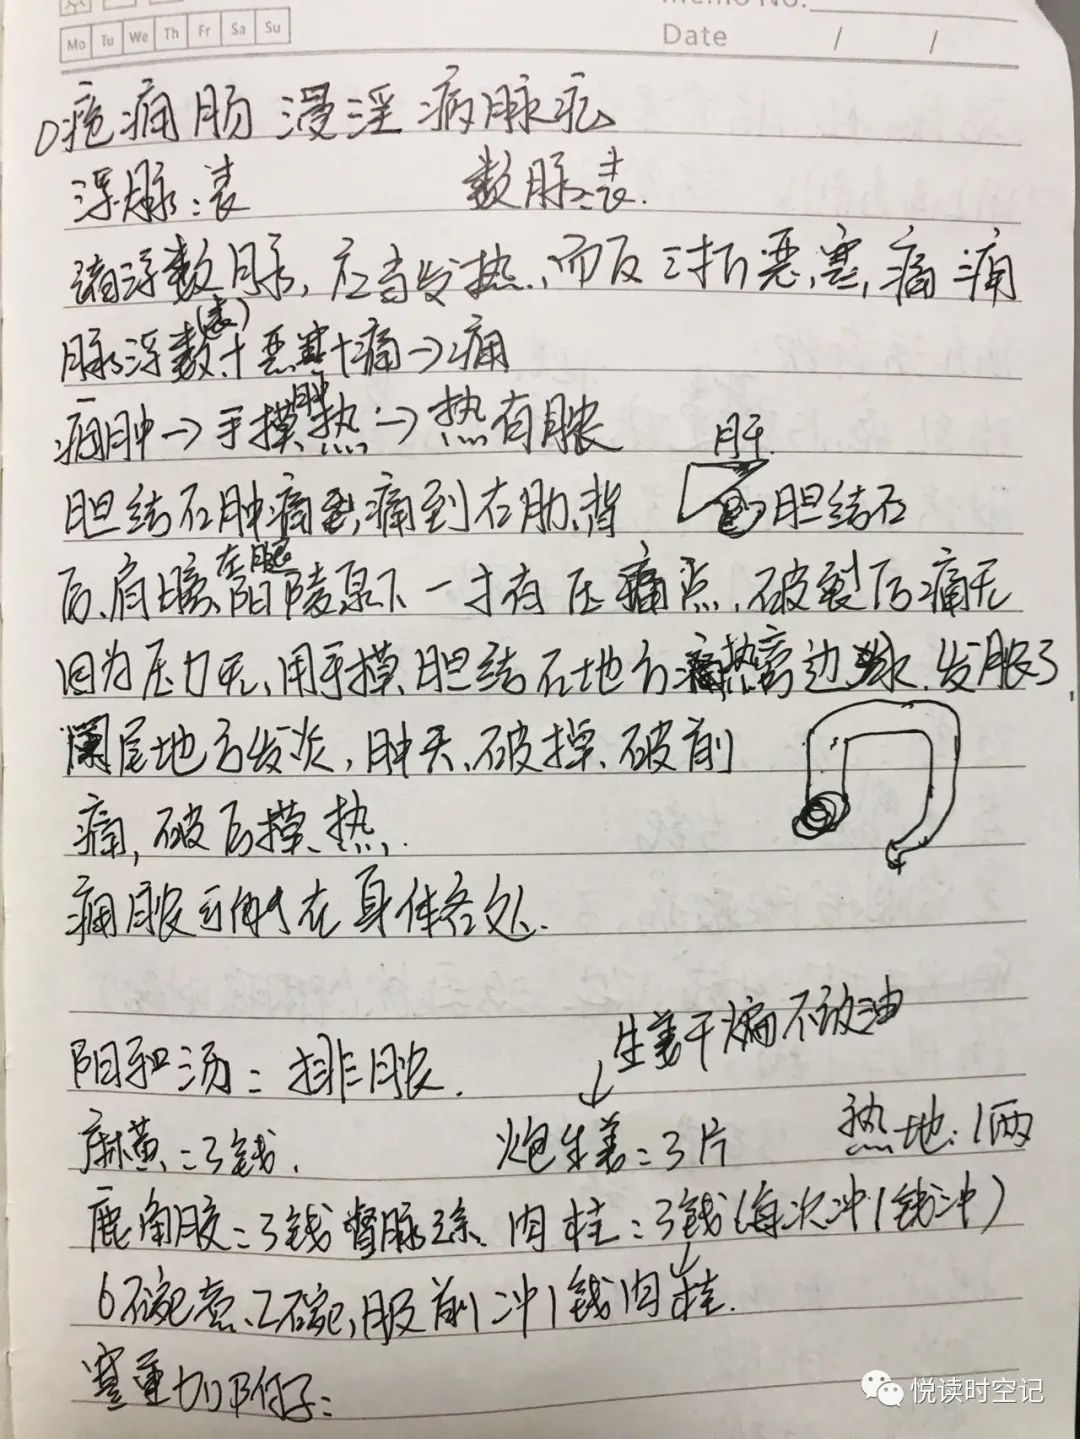 Memo No.
Mo Tu We Th Fr Sa Su
Date / /
疮痈肠浸淫病脉证
浮脉：表 数脉：表.
诸浮数脉，应当发热，而反洒折恶寒，痛痈
(表)
脉浮数+恶寒+痛→痈
痈肿→手摸肿热→热有脓
肝
胆结石肿痛，痛到右肋、背 胆结石
右腿
后、肩膀、阳陵泉下一寸有压痛点，破裂后痛无
因为压力无，用手摸、胆结石地方热，发脓了
阑尾地方发炎，肿大、破掉、破前
痛，破后摸、热，
痈脓可能在身体各处.
生姜干煸不放油
阳和汤：排脓.
麻黄：3钱. 炮生姜：3片 熟地：1两
鹿角胶：3钱 督脉 肉桂：3钱(每次冲1钱冲)
6碗煮、2碗，服前冲1钱肉桂.
寒重加附子：
悦读时空记